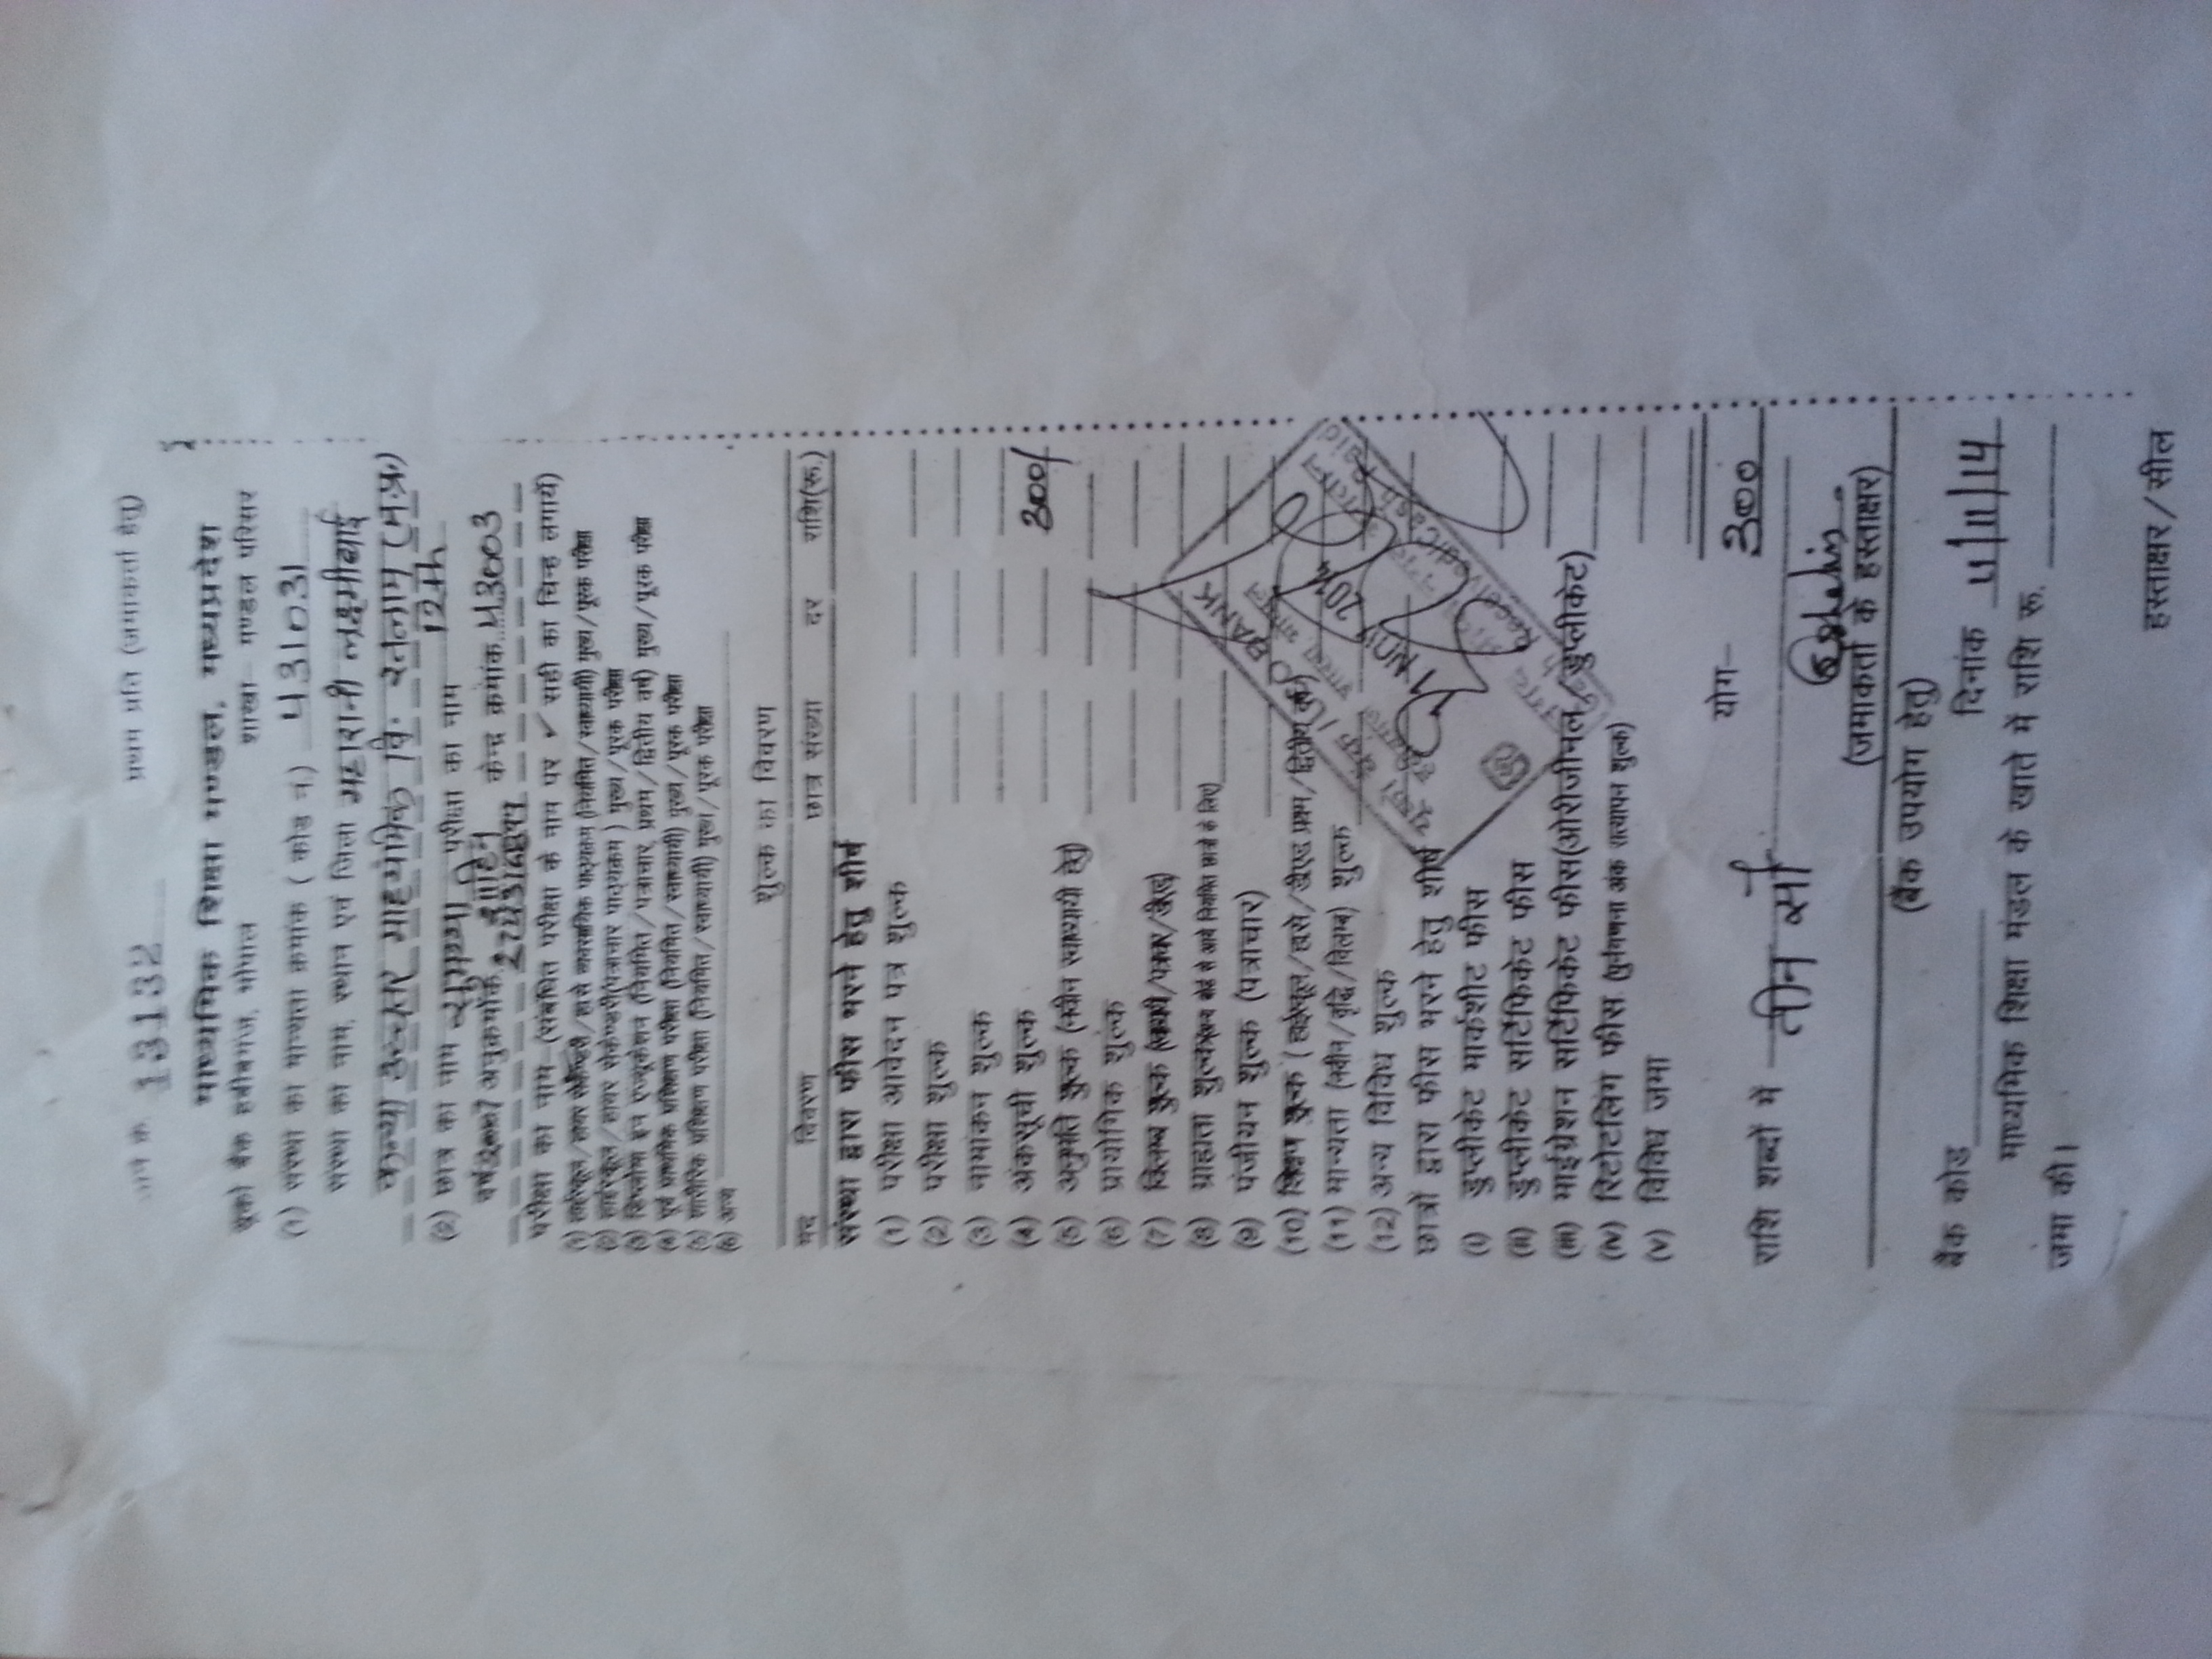 13132 प्रथम प्रति (जमाकर्ता हेतु)
माध्यमिक शिक्षा मण्डल, मध्यप्रदेश
यूको बैंक हबीबगंज, भोपाल शाखा- मण्डल परिसर
(1) संस्था का मान्यता क्रमांक ( कोड नं.) 431031
संस्था का नाम, स्थान एवं जिला महारानी लक्ष्मीबाई
कन्या उच्चतर माध्यमिक वि. रतलाम (म.प्र.)
(2) छात्र का नाम परीक्षा का नाम 12th
वर्ष 2007 अनुक्रमांक शाहिन केन्द्र क्रमांक 43003
परीक्षा का नाम-(संबंधित परीक्षा के नाम पर ✓ सही का चिन्ह लगायें)
(1) हाईस्कूल/हायर सेकेण्डरी/हासे व्यवसायिक पाठ्यक्रम (नियमित/स्वाध्यायी) मुख्य/पूरक परीक्षा
(2) हाईस्कूल/हायर सेकेण्डरी(पत्राचार पाठ्यक्रम ) मुख्य/पूरक परीक्षा
(3) डिप्लोमा इन एज्यूकेशन (नियमित/पत्राचार, प्रथम/द्वितीय वर्ष) मुख्य/पूरक परीक्षा
(4) पूर्व प्राथमिक प्रशिक्षण परीक्षा (नियमित/स्वाध्यायी) मुख्य/पूरक परीक्षा
(5) शारीरिक प्रशिक्षण परीक्षा (नियमित/स्वाध्यायी) मुख्य/पूरक परीक्षा
(6) अन्य
शुल्क का विवरण
मद विवरण छात्र संख्या दर राशि(रू.)
संस्था द्वारा फीस भरने हेतु शीर्ष
(1) परीक्षा आवेदन पत्र शुल्क
(2) परीक्षा शुल्क
(3) नामांकन शुल्क
(4) अंकसूची शुल्क 300/
(5) अनुमति शुल्क (नवीन स्वाध्यायी हेतु)
(6) प्रायोगिक शुल्क
(7) विलम्ब शुल्क (स्वाध्यायी/पत्राचार/डीएड)
(8) ग्राह्यता शुल्क(अन्य बोर्ड से आये नियमित छात्रों के लिए)
(9) पंजीयन शुल्क (पत्राचार)
(10) शिक्षण शुल्क ( हाईस्कूल/हासे/डीएड प्रथम/द्वितीय वर्ष)
(11) मान्यता (नवीन/वृद्धि/विलम्ब) शुल्क
(12) अन्य विविध शुल्क
यूको बैंक / UCO BANK
हबीबगंज शाखा, भोपाल
NOV 2014
Cash Received/Cash Paid
छात्रों द्वारा फीस भरने हेतु शीर्ष
(i) डुप्लीकेट मार्कशीट फीस
(ii) डुप्लीकेट सर्टिफिकेट फीस
(iii) माईग्रेशन सर्टिफिकेट फीस(ओरीजीनल/डुप्लीकेट)
(iv) रिटोटलिंग फीस (पुर्नगणना अंक सत्यापन शुल्क)
(v) विविध जमा
योग- 300
राशि शब्दों में तीन सौ
(जमाकर्ता के हस्ताक्षर)
(बैंक उपयोग हेतु)
बैंक कोड दिनांक 11/11/14
माध्यमिक शिक्षा मंडल के खाते में राशि रू.
जमा की।
हस्ताक्षर/सील